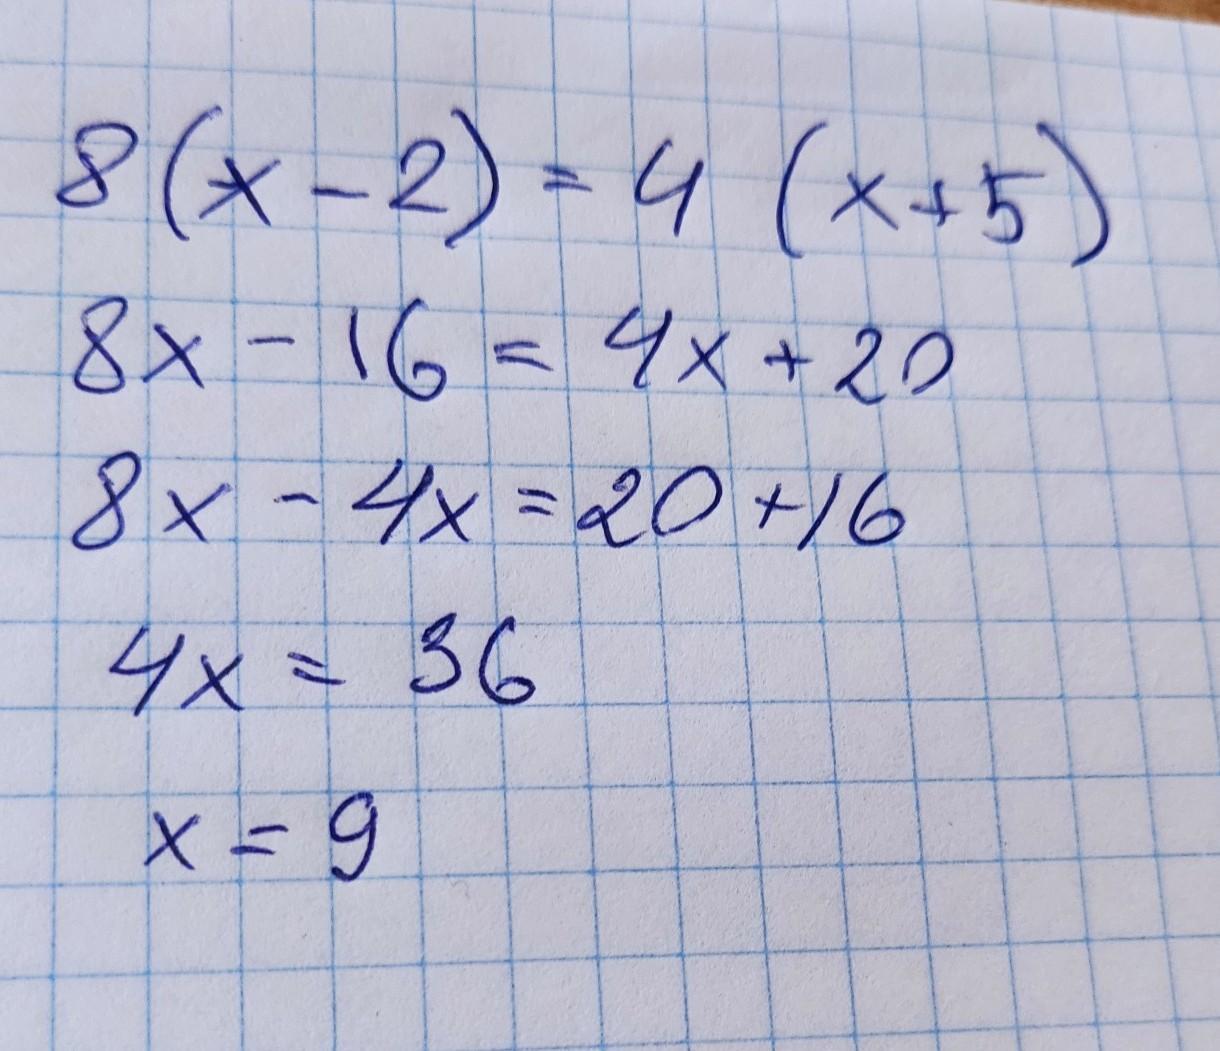 8(x-2)=4(x+5)
8x-16=4x+20
8x-4x=20+16
4x=36
x=9